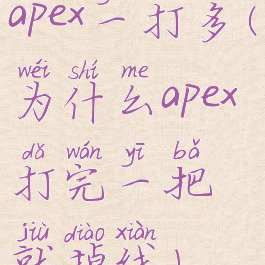 apex一打多(
wéi shí me
为什么apex
dǎ wán yī bǎ
打完一把
jiù diào xiàn
就掉线)